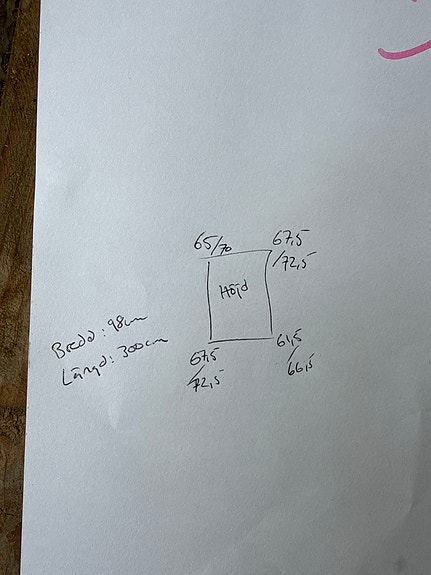 65/70
67,5
/72,5
Höjd
Bredd: 98cm
Längd: 300cm
67,5
/72,5
61,5
/
66,5